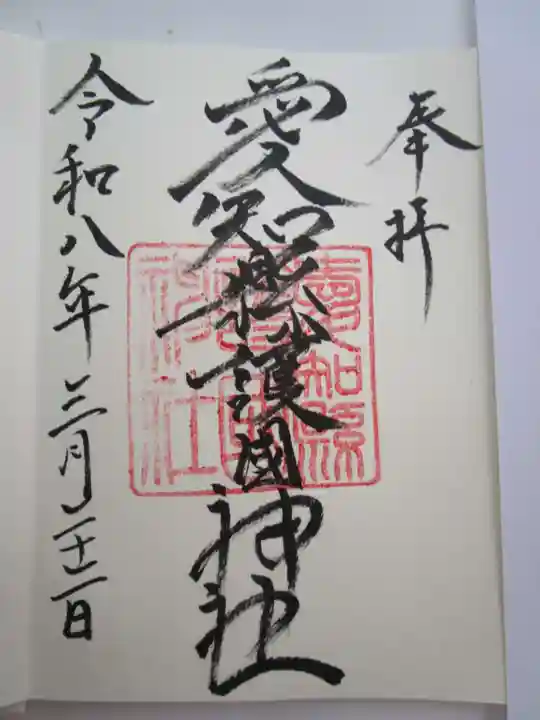 奉拝
愛知縣護國神社
愛知縣護國神社
令和八年三月二十二日